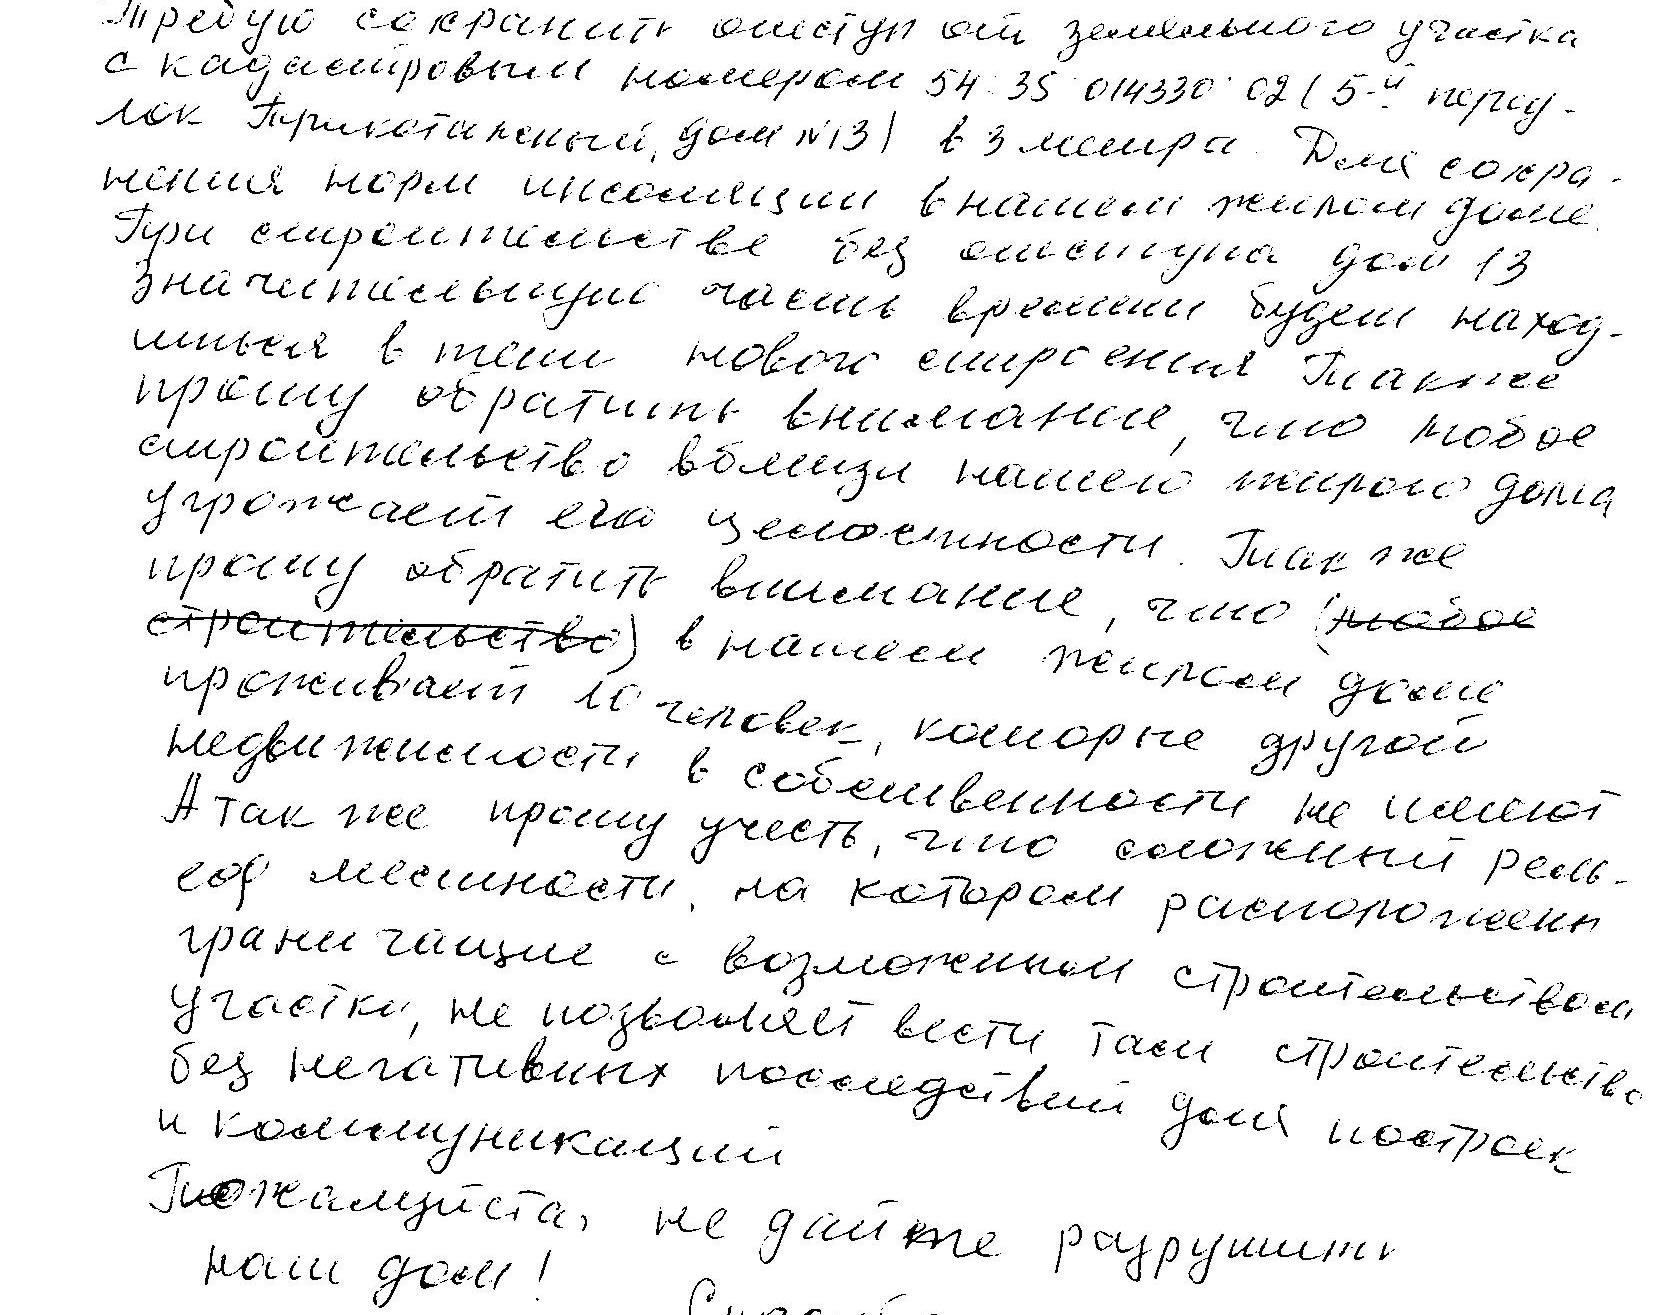 Требую сохранить отступ от земельного участка
с кадастровым номером 54:35:014330:02 (5-й переу-
лок Трикотажный, дом №13) в 3 метра. Для сохра-
нения норм инсоляции в нашем жилом доме.
При строительстве без отступа дом 13
значительную часть времени будет наход-
иться в тени нового строения Также
прошу обратить внимание, что любое
строительство вблизи нашего жилого дома
угрожает его целостности. Так же
прошу обратить внимание, что (любое
строительство) в нашем жилом доме
проживает 10 человек, которые другой
недвижимости в собственности не имеют
А так же прошу учесть, что сложный рель-
еф местности, на котором расположены
граничащие с возможным строительством
участки, не позволяет вести там строительство
без негативных последствий для построек
и коммуникаций
Пожалуйста, не дайте разрушить
наш дом!